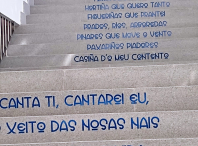 HORTIÑA QUE QUERO TANTO
FIGUEIRIÑAS QUE PRANTEI
PRADOS, RÍOS, ARBOREDAS
PINARES QUE MOVE O VENTO
PAXARIÑOS PIADORES
CASIÑA D'O MEU CONTENTO
CANTA TI, CANTAREI EU,
O XEITO DAS NOSAS NAIS